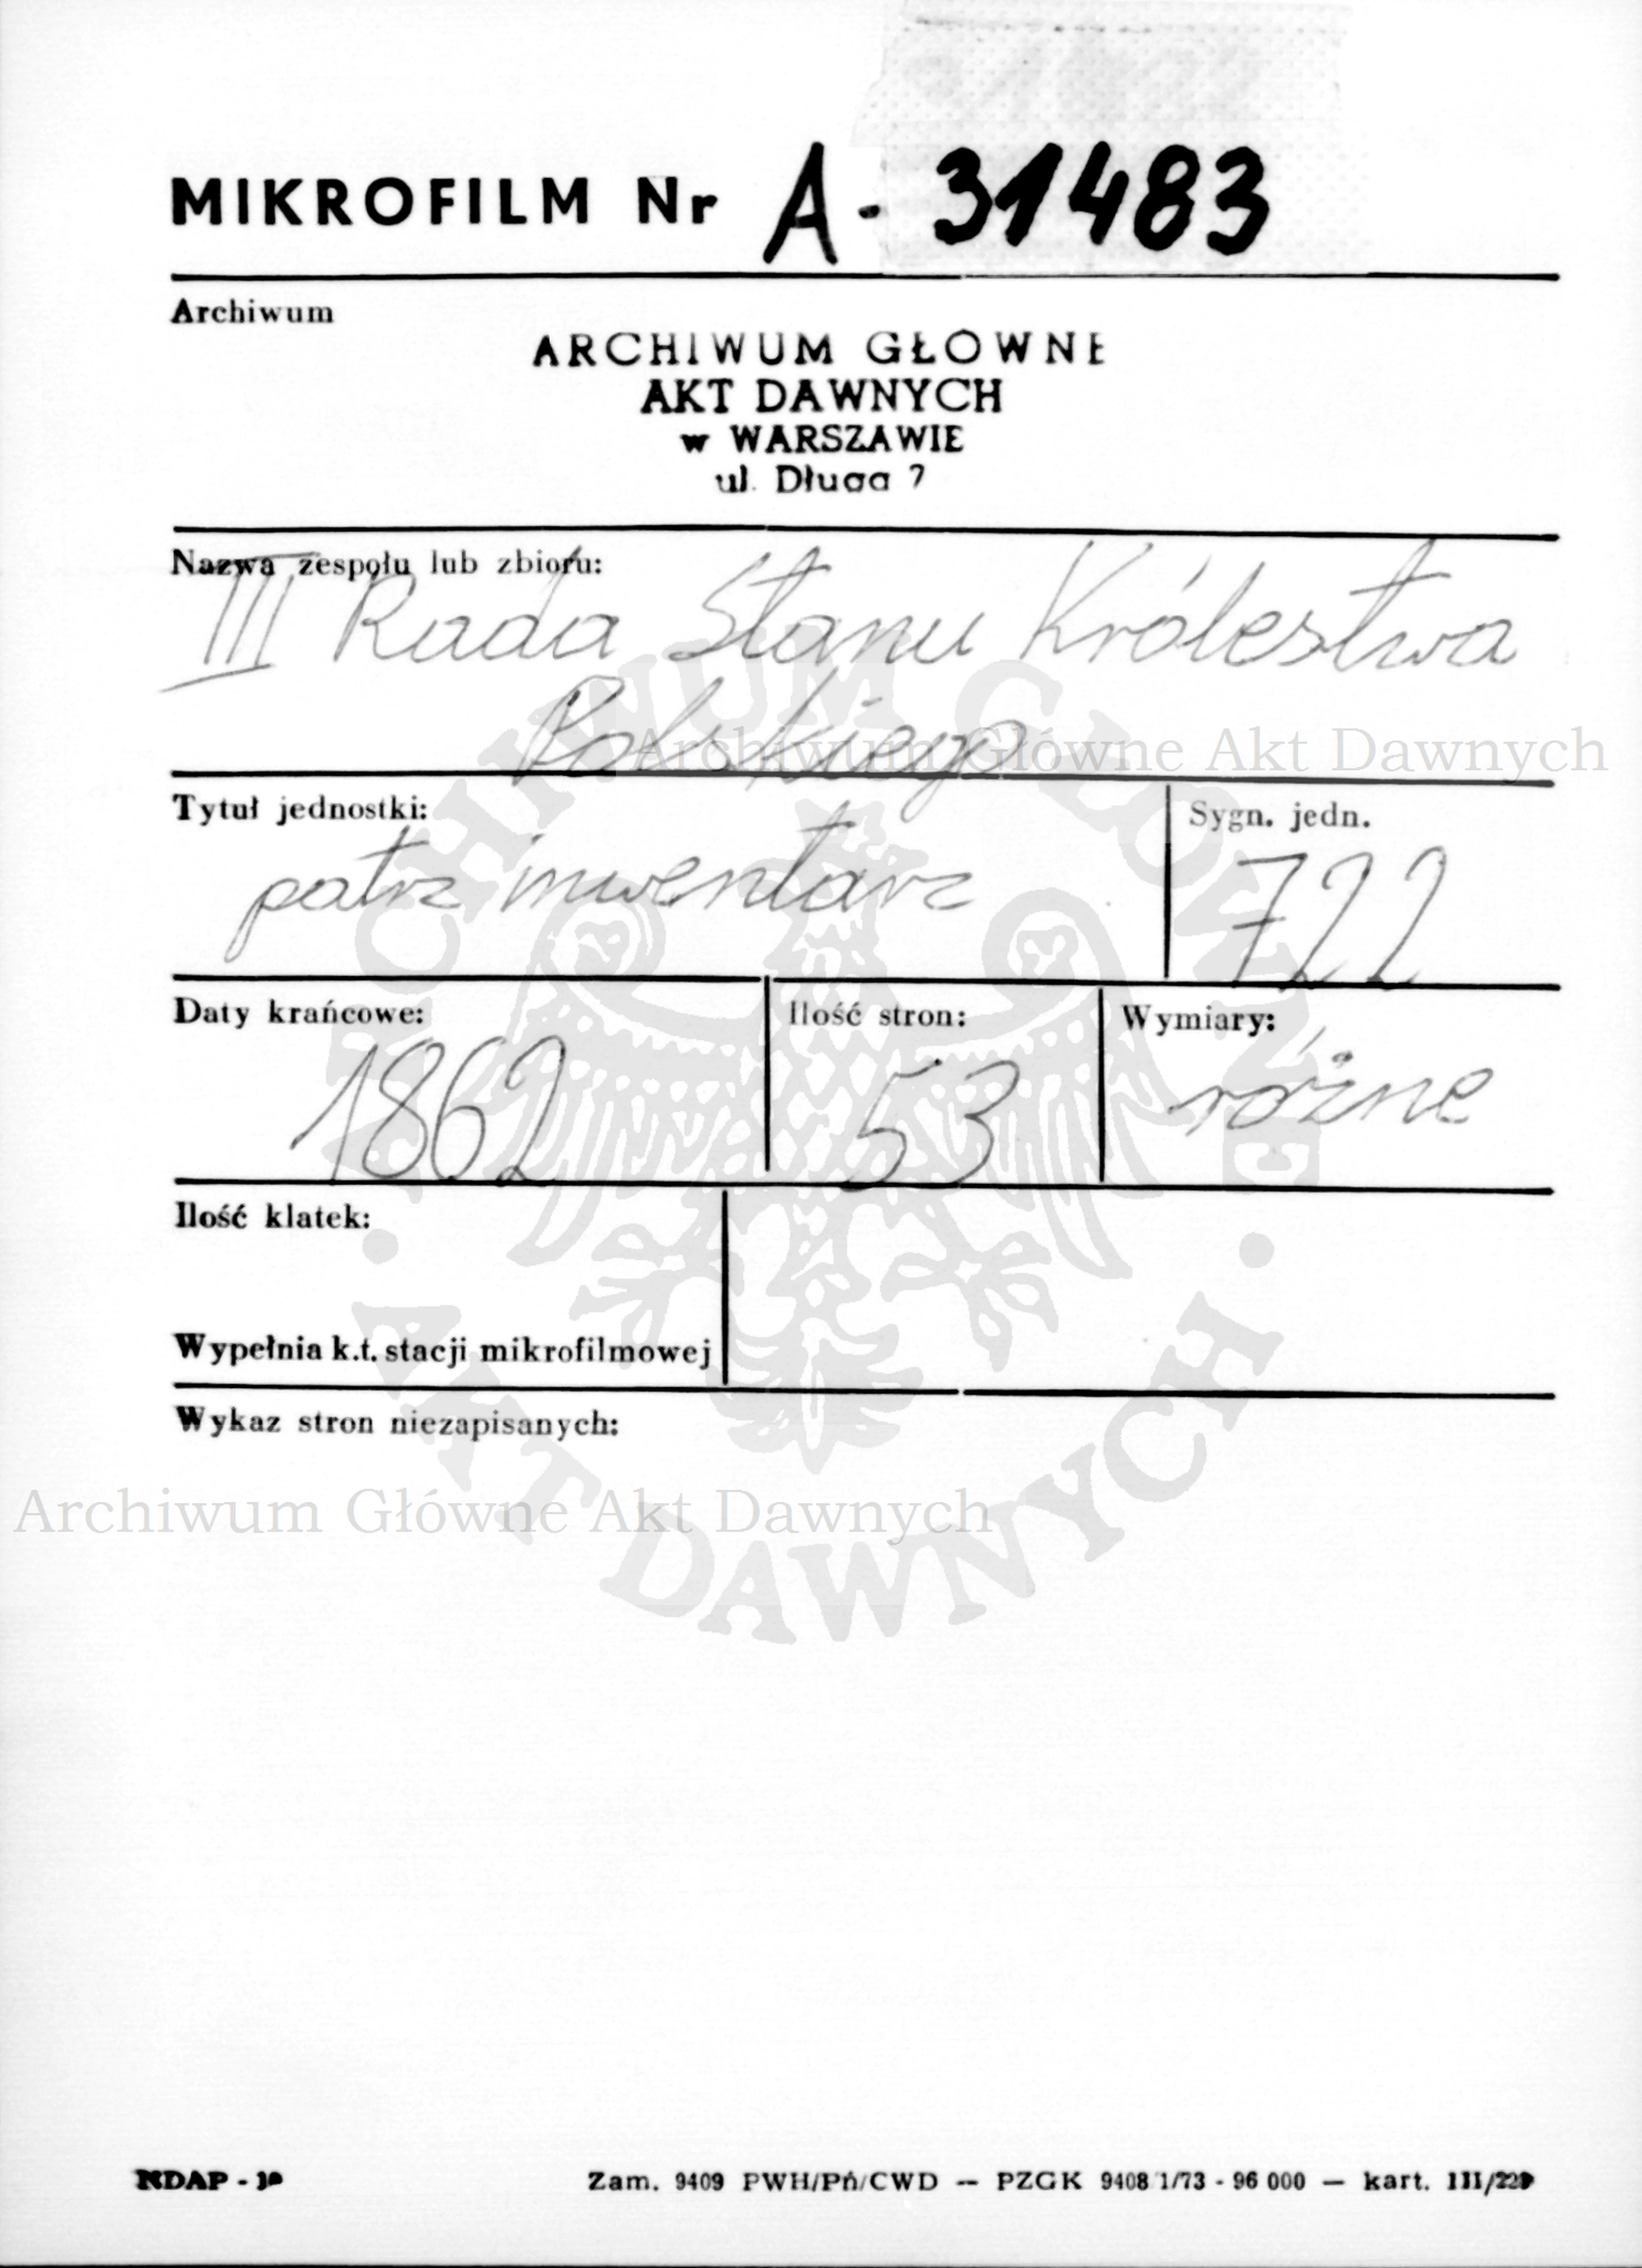 MIKROFILM Nr A-31483
Archiwum
ARCHIWUM GŁOWNE
AKT DAWNYCH
w WARSZAWIE
ul. Długa 7
Nazwa zespołu lub zbioru:
III Rada Stanu Królestwa
Polskiego
Archiwum Główne Akt Dawnych
Tytuł jednostki:
Sygn. jedn.
patrz inwentarz
722
Daty krańcowe:
Ilość stron:
Wymiary:
1862
53
różne
Ilość klatek:
Wypełnia k.t. stacji mikrofilmowej
Wykaz stron niezapisanych:
Archiwum Główne Akt Dawnych
ARCHIWUM GŁÓWNE
· AKT DAWNYCH ·
NDAP -
Zam. 9409 PWH/Pń/CWD — PZGK 9408 1/73 - 96 000 — kart. III/229